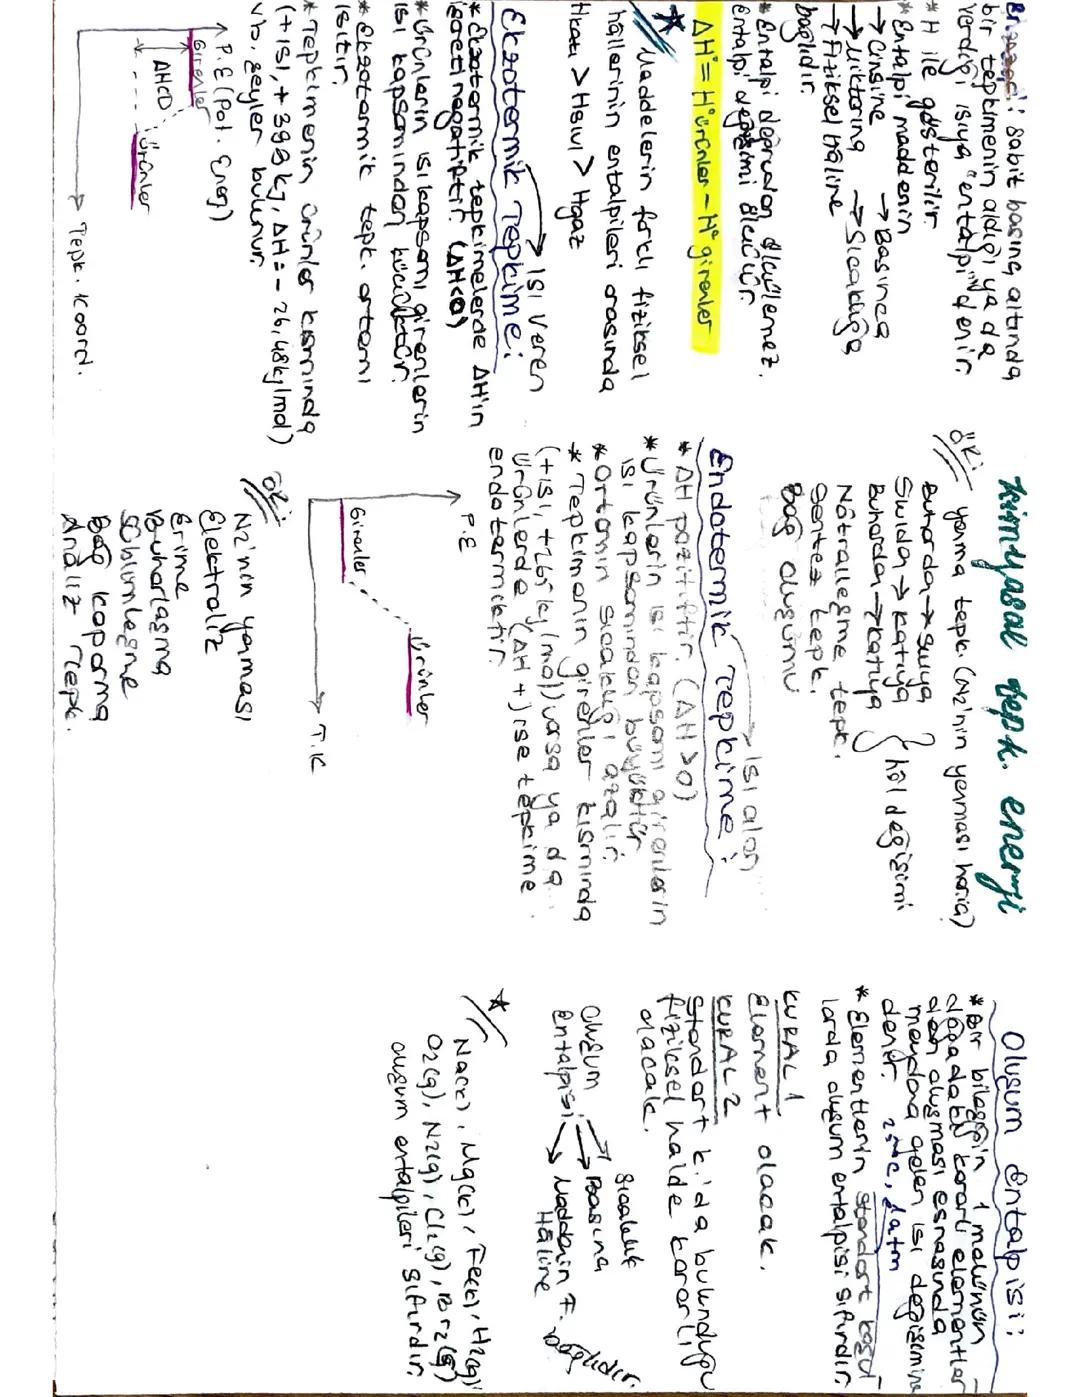 Kimyasal tepk. enerji
Entalpi: Sabit basınç altında
bir tepkimenin aldığı ya da
verdiği ısıya "entalpi" denir.
* H ile gösterilir.
* Entalpi maddenin
→ Cinsine → Basınca
→ Miktarına → Sıcaklığa
→ Fiziksel hâline
bağlıdır.
* Entalpi doğrudan ölçülemez.
entalpi değişimi ölçülür.
ΔH° = H°ürünler - H°girenler
* Maddelerin farklı fiziksel
hâllerinin entalpileri arasında
Hkatı > Hsıvı > Hgaz
→ Isı veren
Ekzotermik Tepkime:
* Ekzotermik tepkimelerde ΔH'ın
işareti negatiftir. (ΔH<0)
* Ürünlerin ısı kapsamı girenlerin
ısı kapsamından küçüktür.
* Ekzotermik tepk. ortamı
ısıtır.
* Tepkimenin ürünler kısmında
(+ısı, + 398 kj, ΔH = - 26,48kj/mol)
vb. şeyler bulunur.
P.E (Pot. Enerj)
Girenler
ΔH<0
Ürünler
Tepk. koord.
ÖR:
yanma tepk. (N2'nin yanması hariç)
Buharda → sıvıya
Sıvıda → katıya
Buhardan → katıya
} hâl değişimi
Nötralleşme tepk.
Sentez tepk.
Bağ oluşumu
→ Isı alan
Endotermik Tepkime:
* ΔH pozitiftir. (ΔH >0)
* Ürünlerin ısı kapsamı girenlerin
ısı kapsamından büyüktür.
* Ortamın sıcaklığı azalır.
* Tepkimenin girenler kısmında
(+ısı, +265 kj/mol) varsa ya da
ürünlerde (ΔH +) ise tepkime
endotermiktir.
P.E
Girenler
Ürünler
T.K
ÖR:
N2'nin yanması
Elektroliz
Erime
Buharlaşma
Süblimleşme
Bağ koparma
Analiz Tepk.
Oluşum Entalpisi:
* Bir bileşiğin 1 molünün
doğadaki kararlı elementler
den oluşması esnasında
meydana gelen ısı değişimine
denir. 25°C, 1 atm
* Elementlerin standart koşul
larda oluşum entalpisi sıfırdır.
KURAL 1
Element olacak.
KURAL 2
Standart k.'da bulunduğu
fiziksel halde kararlı
olacak.
Oluşum
entalpisi
→ Sıcaklık
→ Basınç
→ Maddenin F.
Hâline
bağlıdır.
* Na(k), Mg(k), Fe(k), H2(g),
O2(g), N2(g), Cl2(g), Br2(s)
oluşum entalpileri sıfırdır.